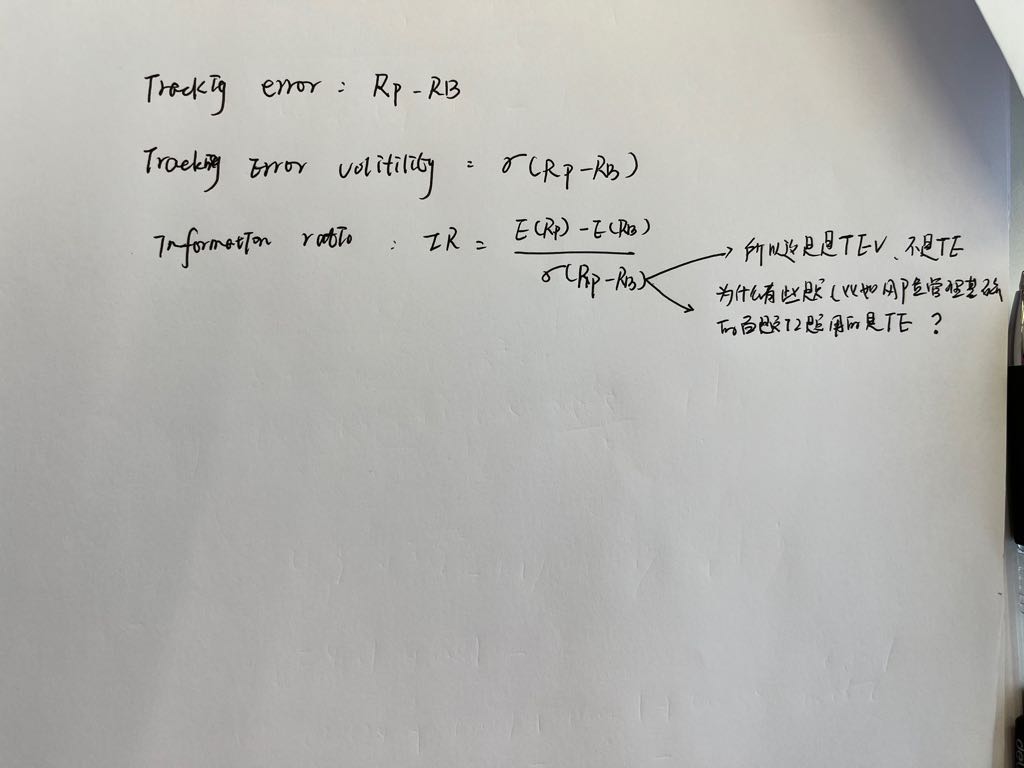 Tracking error : Rp - RB
Tracking Error volitility = σ(Rp - RB)
Information ratio : IR = E(Rp) - E(RB) / σ(Rp - RB)
→ 所以这是TEV、不是TE
为什么有些题(比如 风险管理基础
的百题12题用的是TE ?